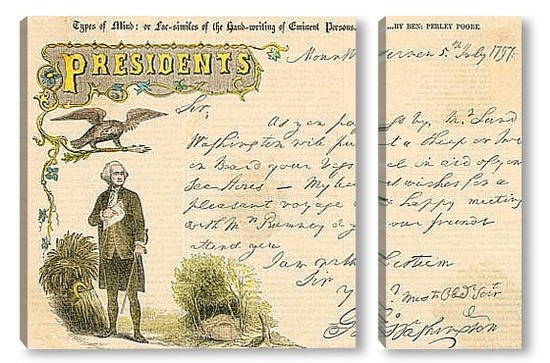 Types of Mind: or Fac-similes of the Hand-writing of Eminent Persons. ...BY BEN: PERLEY POORE.
PRESIDENTS
Mount Vernon 5th July 1797.
Sir,
As you pass by, Mrs
Washington will put a Sheep or two
on Board your in aid of your
Sea Stores — My best wishes for a
pleasant voyage & happy meeting
with Mrs Rumney & your friends
attend you
I am with Esteem
Sir
Yr Most Obedt Servt
Go Washington